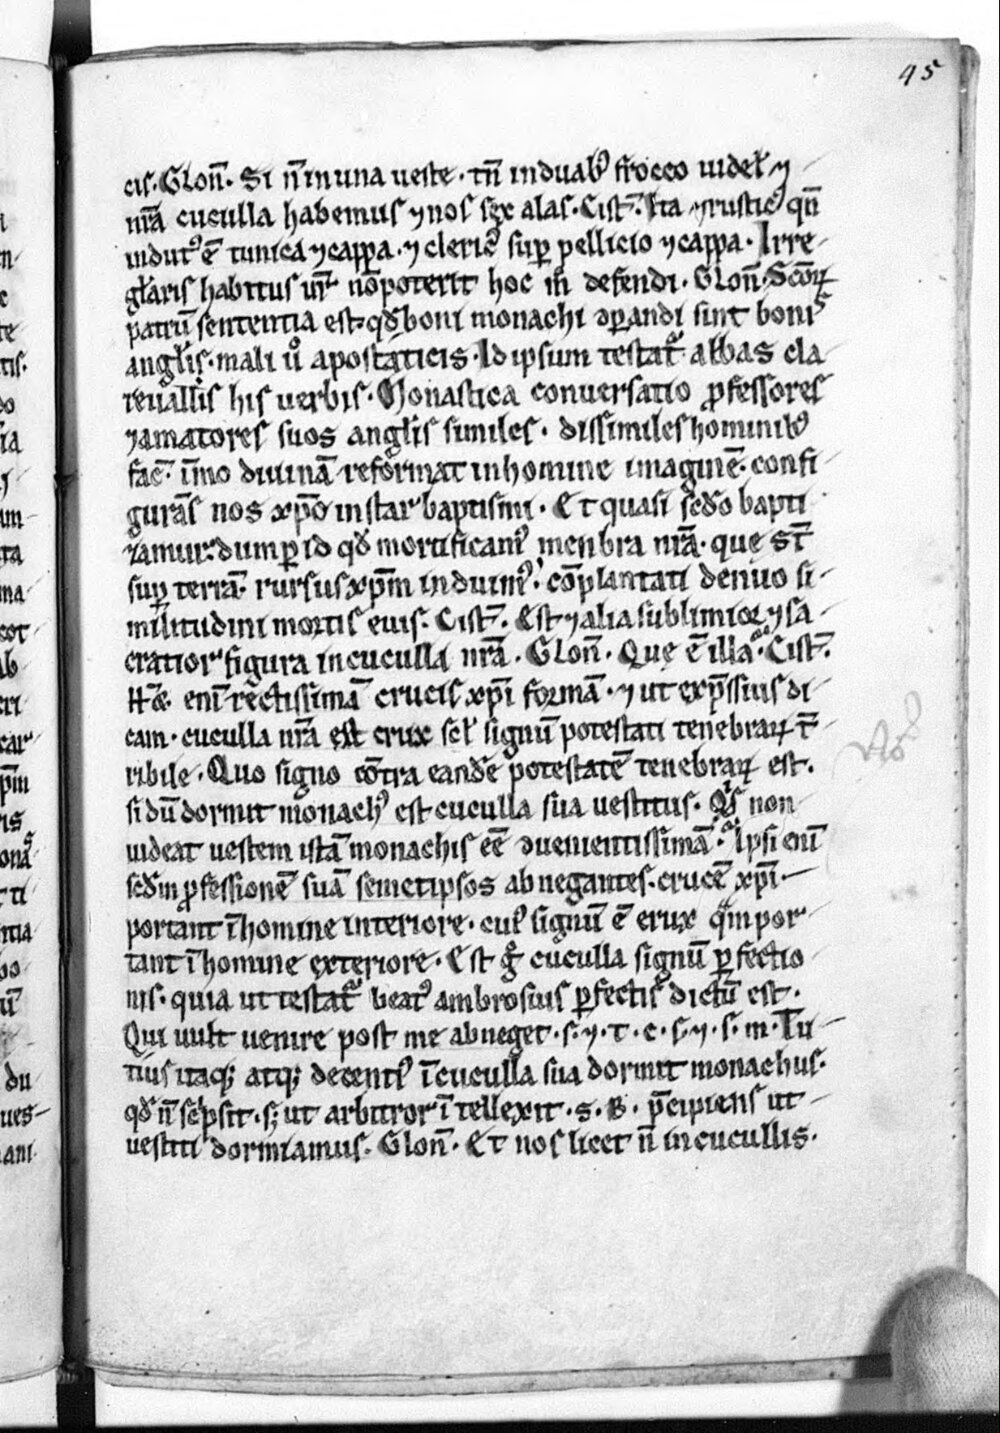 45
cis. Glon̄. Si n̄ in una ueste. tn̄ in duabꝰ frocco uidel⁊ ⁊
nr̄a cuculla habemus ⁊ nos sex alas. Cist̄. Ita ⁊ rusticꝰ qn̄
indutꝰ ē tunica ⁊ cappa. ⁊ clericꝰ suꝑ pellicio ⁊ cappa. Irre-
gl̄aris habitus ur̄ nō poterit hoc m̊ defendi. Glon̄. Scōꝝ
patrū sententia est. qđ boni monachi ꝯꝑandi sint bonis
angl̄is. mali ů apostaticis. Id ipsum testat᷑ abbas cla
reuallis his uerbis. Monastica conuersatio ꝓfessores
⁊ amatores suos angl̄is similes. dissimiles hominibꝰ
fac̄. īmo diuinā reformat in homine imaginē. confi
gurās nos xp̄o instar baptismi. Et quasi scđo bapti
zamur: dum ꝑ id qđ mortificamꝰ menbra nr̄a. quę st̄
suꝑ terrā. rursus xp̄m induimꝰ. cōplantati denuo si-
militudini mortis eius. Cist̄. Est ⁊ alia sublimior ⁊ sa-
cratior figura in cuculla nr̄a. Glon̄. Quę ē illa. Cist̄.
enī rectissimā crucis xp̄i formā. ⁊ ut exp̄ssius di-
cam. cuculla nr̄a est crux scl̄ signū potestati tenebraꝝ t̄
ribile. Quo signo cōtra eandē potestatē tenebraꝝ est.
si dū dormit monachꝰ est cuculla sua uestitus. Qͥs non
uideat uestem istā monachis eē ꝯuenientissimā. Ipsi enī
scđm ꝓfessionē suā semetipsos abnegantes. crucē xp̄i
portant ī homine interiore. cuiꝰ signū ē crux qᵃm por-
tant ī homine exteriore. Est gͦ cuculla signū ꝑfectio
nis. quia ut testat᷑ beatꝰ ambrosius ꝑfectis dictū est.
Qui uult uenire post me abneget. s. ⁊. t. c. s. ⁊. s. m. Tu-
tius itaqꝫ atqꝫ decentiꝰ ī cuculla sua dormit monachus.
qđ n̄ scͥpsit. sꝫ ut arbitror ītellexit. S. B. p̄cipiens ut
uestiti dormiamus. Glon̄. Et nos licet n̄ in cucullis.